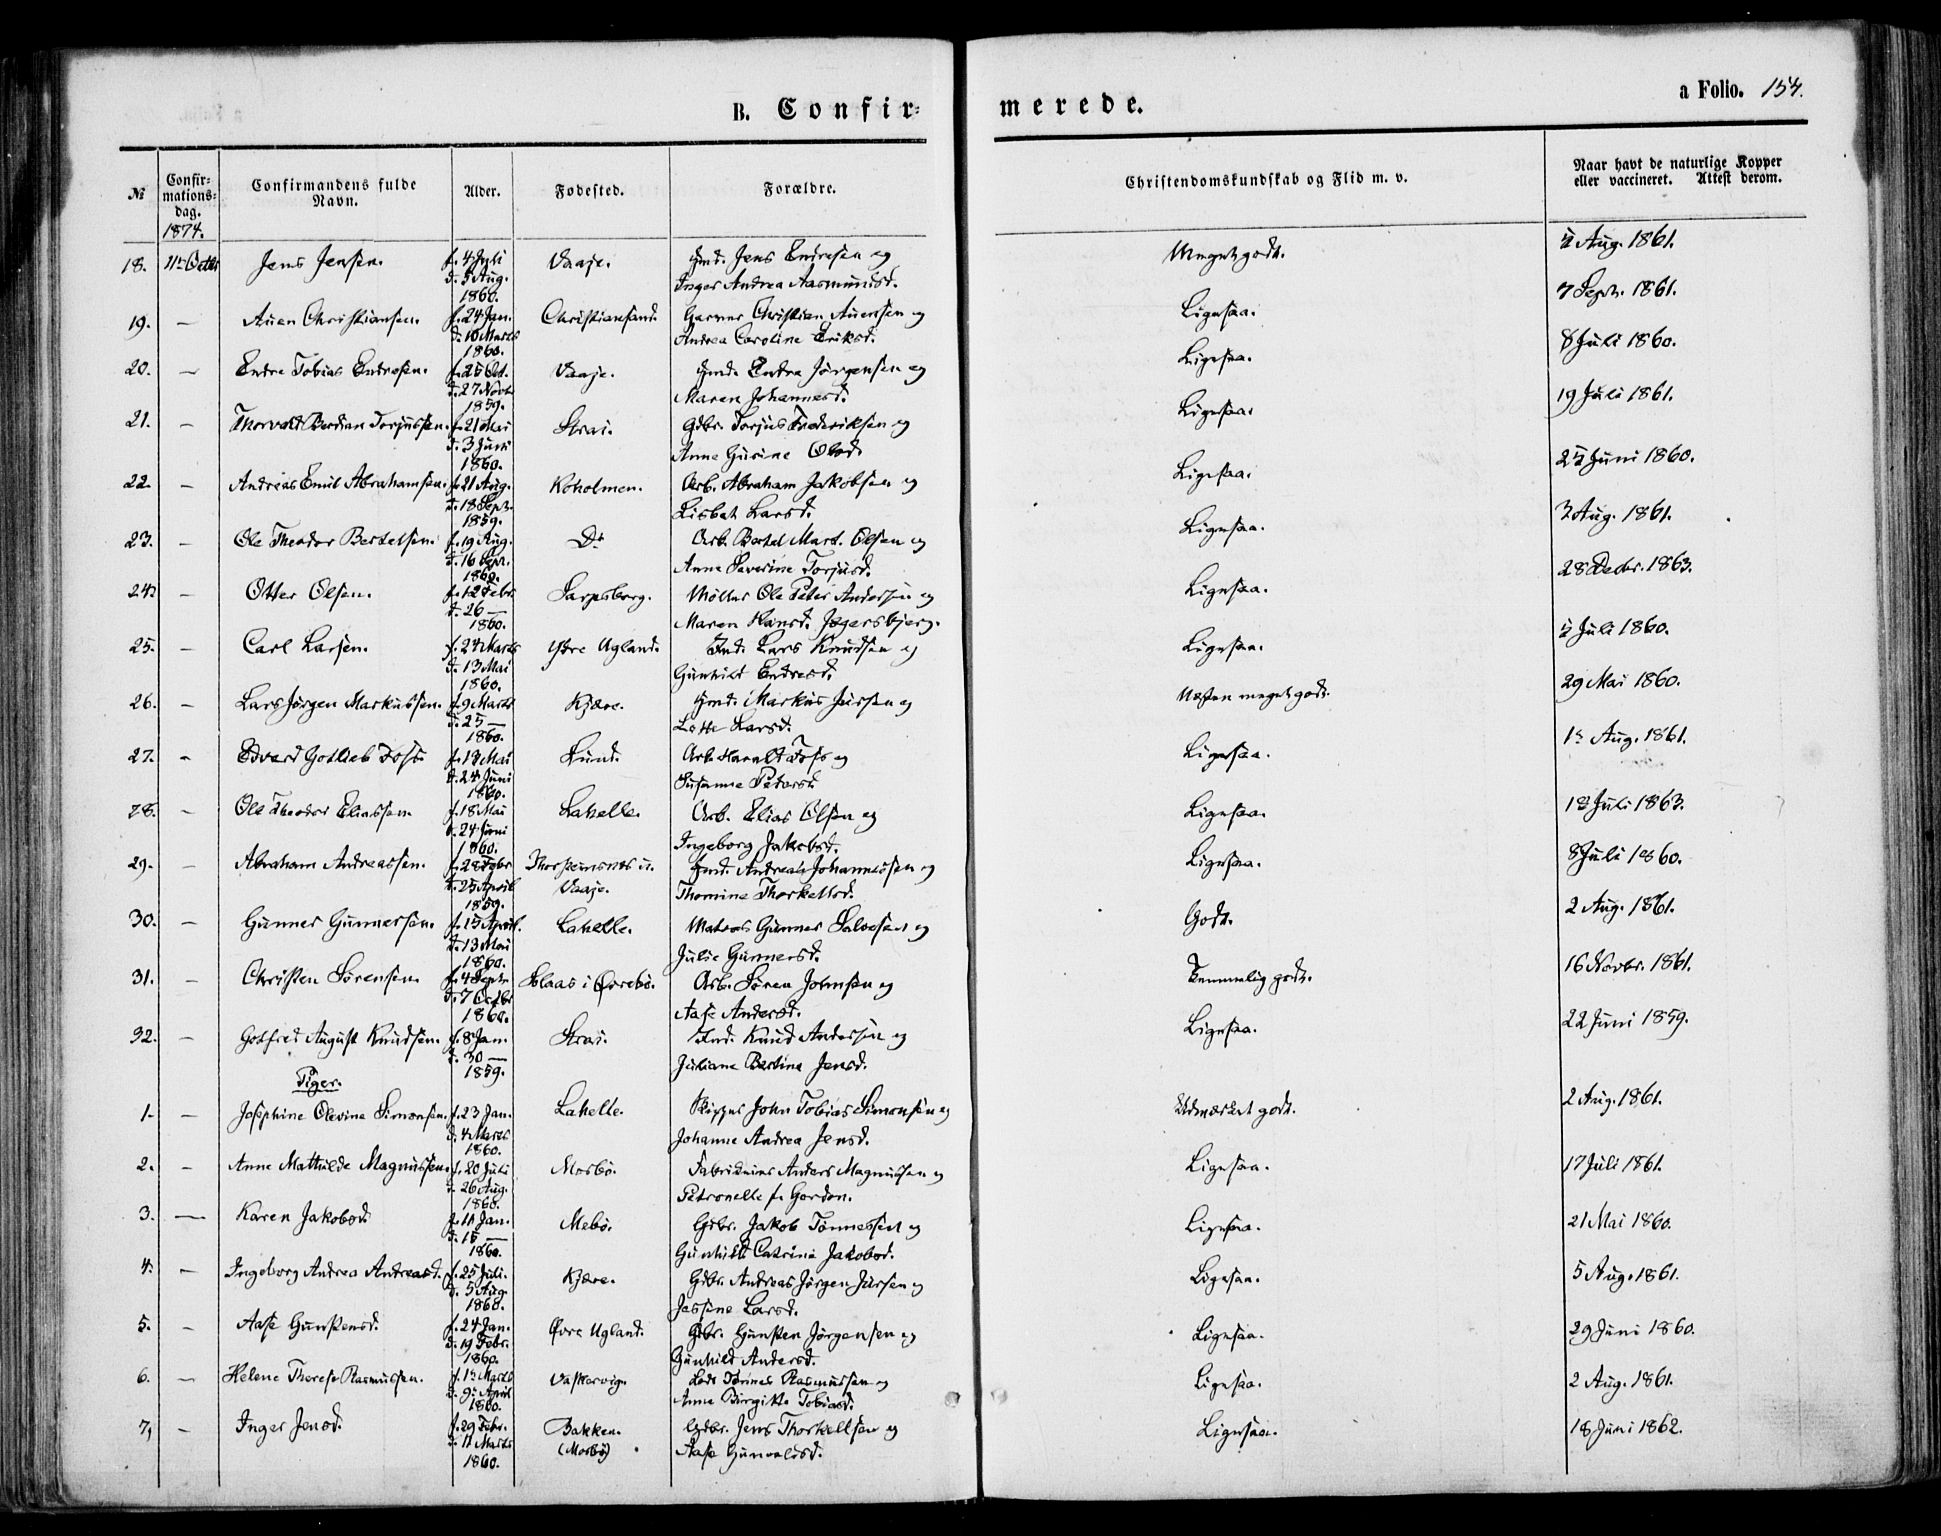 B. Confir-
merede.
a Folio. 154.
№ Confir-mations-dag. Confirmandens fulde Navn. Alder. Fødested. Forældre. Christendomskundskab og Flid m. v. Naar havt de naturlige Kopper eller vaccineret. Attest derom.
1874.
18. 11te Octbr Jens Jensen. f. 4 Juli Vaaje. Gmd. Jens Endresen og Meget godt. 5 Aug. 1861.
d. 5 Aug. Inger Andrea Aasmundsd.
1860.
19. — Auen Christiansen. f. 24 Jan. Christiansand. Garver Christian Auensen og Ligesaa. 7 Septr. 1861.
d. 10 Marts Andrea Caroline Eriksd.
1860.
20. — Endre Tobias Endresen. f. 25 Oct. Vaaje. Gmd. Endre Jørgensen og Ligesaa. 8 Juli 1860.
d. 27 Novbr Maren Johannesd.
1859.
21. — Thorvald Berdian Torjussen. f. 21 Mai Strai. Gdbr. Torjus Frederiksen og Ligesaa. 19 Juli 1861.
d. 3 Juni Anne Gurine Olsd.
1860.
22. — Andreas Emil Abrahamsen. f. 21 Aug. Koholmen. Arb. Abraham Jakobsen og Ligesaa. 25 Juni 1860.
d. 18 Septr. Lisbet Larsd.
1859.
23. — Ole Theodor Bertelsen. f. 19 Aug. Do Arb. Bertel Mart. Olsen og Ligesaa. 3 Aug. 1861.
d. 16 Sept. Anne Severine Torjusd.
1860.
24. — Otter Olsen. f. 12 Febr. Sarpsborg. Møller Ole Peter Andersen og Ligesaa. 28 Decbr. 1863.
d. 26 — Maren Hansd. Jægersbjerg.
1860.
25. — Carl Larsen. f. 24 Marts Ytre Ugland. Ind. Lars Knudsen og Ligesaa. 5 Juli 1860.
d. 13 Mai Gunhild Endresd.
1860.
26. — Lars Jørgen Markussen. f. 9 Marts Kjære. Gmd. Markus Jursen og Næsten meget godt. 29 Mai 1860.
d. 25 — Lotte Larsd.
1860.
27. — Edvard Gotlieb Foss. f. 13 Mai Lund. Arb. Harald Foss og Ligesaa. 1ste Aug. 1861.
d. 24 Juni Susanne Pedersd.
1860.
28. — Ole Theodor Eliassen. f. 18 Mai Lahelle. Arb. Elias Olsen og Ligesaa. 18 Juli 1863.
d. 24 Juni Ingeborg Jakobsd.
1860.
29. — Abraham Andreassen. f. 28 Febr. Gmd. Andreas Johannessen og Ligesaa. 8 Juli 1860.
d. 25 April Vaaje. Thomine Thorkellsd.
1859.
30. — Gunner Gunnersen. f. 15 April. Lahelle. Matros Gunner Salvesen og Godt. 2 Aug. 1861.
d. 13 Mai Julie Gunnersd.
1860.
31. — Christen Sørensen. f. 4 Septr Aaas i Øvrebø. Arb. Søren Johnsen og Temmelig godt. 16 Novbr. 1861.
d. 7 Octbr Aase Andersd.
1860.
32. — Gotfred August Knudsen. f. 8 Jan. Strai. Ind. Knud Andersen og Ligesaa. 22 Juni 1859.
d. 30 — Juliane Bertine Jensd.
1859.
Piger.
1. — Josephine Olevine Simonsen. f. 23 Jan. Lahelle. Skipper John Tobias Simonsen og Udmærket godt. 2 Aug. 1861.
d. 4 Marts Johanne Andrea Jensd.
1860.
2. — Anne Mathilde Magnussen. f. 20 Juli Mosbø. Anders Magnussen og Ligesaa. 17 Juli 1861.
d. 26 Aug. Petronelle f. Gordon.
1860.
3. — Karen Jakobsd. f. 11 Jan. Mebø. Gdbr. Jakob Tønnessen og Ligesaa. 21 Mai 1860.
d. 15 — Gunhild Catrine Jakobsd.
1860.
4. — Ingeborg Andrea Andreasd. f. 25 Juli. Kjære. Gdbr. Andreas Jørgen Jursen og Ligesaa. 5 Aug. 1861.
d. 5 Aug. Jessine Larsd.
1860.
5. — Aase Gunstensd. f. 24 Jan. Øvre Ugland. Gdbr. Gunsten Jørgensen og Ligesaa. 29 Juni 1860.
d. 19 Febr. Gunhild Andersd.
1860.
6. — Helene Therese Rasmussen. f. 1ste Marts Vaskervig. Lods Tørres Rasmussen og Ligesaa. 2 Aug. 1861.
d. 9de April Anne Birgitte Tobiasd.
1860.
7, — Inger Jensd. f. 29 Febr. Bakken. Gdbr. Jens Thorkellsen og Ligesaa. 18 Juni 1862.
d. 11 Marts (Mosbø) Aase Gunvaldsd.
1860.